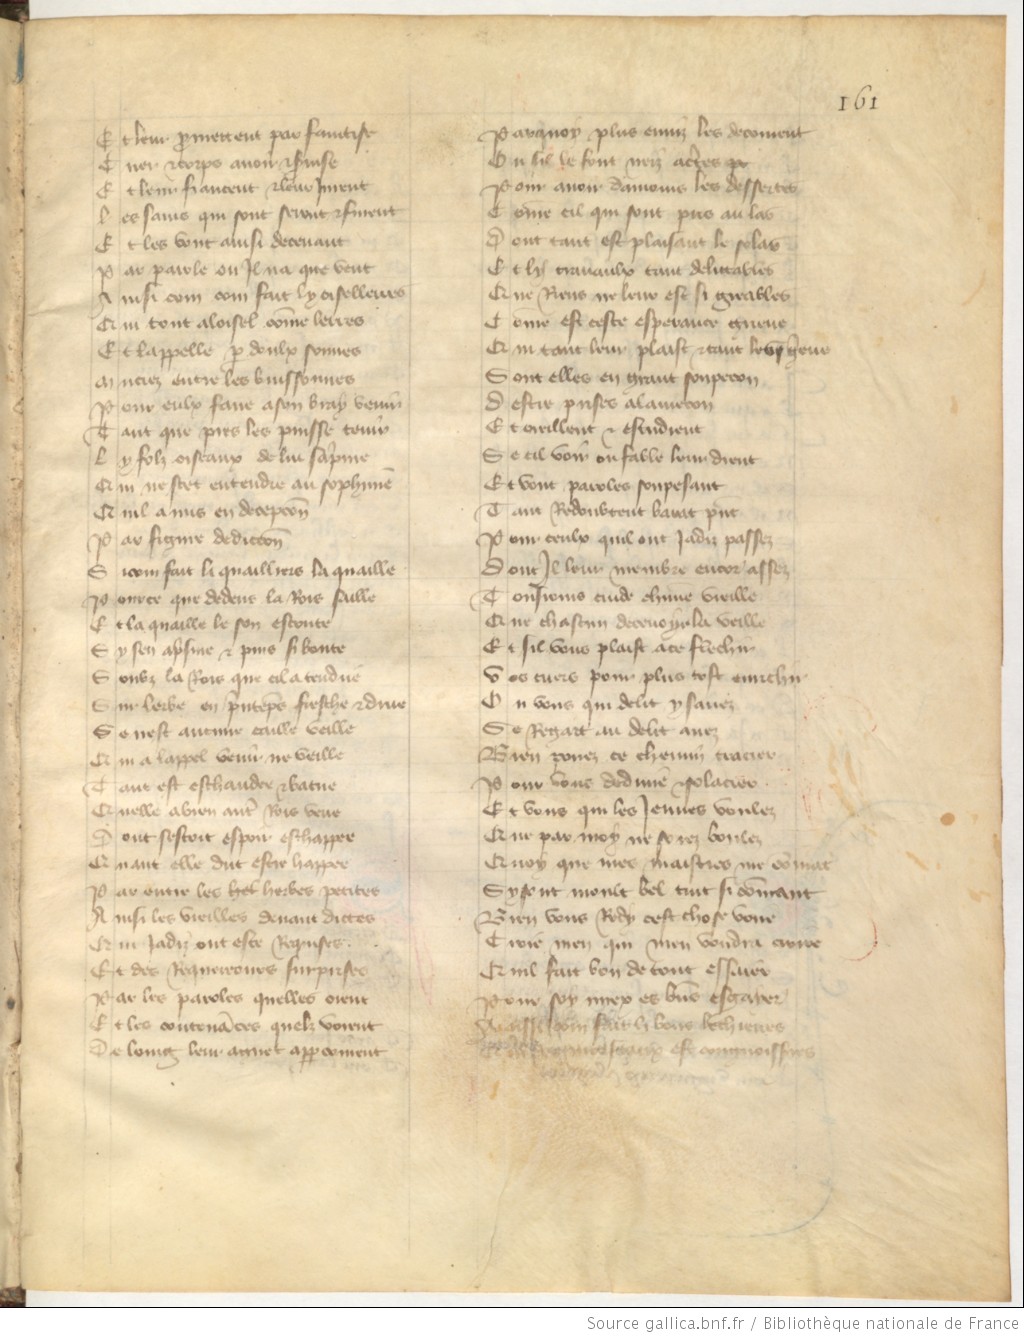 161
Et leur promettent par faintise
Cuer et corps avoir et franchise
Et leur fiancent et leur jurent
Les sains qui sont seront
Et les vont ainsi decevant
Par parole ou Il na que vent
Ainsi com com fait ly oiselleurres
Qui tent aloisel comme lerres
Et lappelle par doulx sonnes
Muciez entre les buissonnes
Pour eulx faire a son bray venir
Tant que pres les puisse tenir
Ly folz oiseaux de lui saprime
Qui ne scet entendre au sophime
Quil a mis en decepcion
Par figure de diccion
Si com fait li quailliers la quaille
Pource que dedens la Rois saille
Et la quaille le son escoute
Sy sen apsime et puis si boute
Soubz la Rois que cil a tendue
Sur lerbe en printemps fresche et drue
Se nest aucune caille veille
Qui a lappel venir ne veille
Tant est eschaudee et batue
Quelle a bien autre Rois veue
Dont sestoit espoir eschappee
Quant elle dut estre happee
Par entre les herbes petites
Ainsi les vieilles devant dictes
Qui Jadiz ont este Requises
Et des Requereurs surprises
Par les paroles quelles oient
Et les contenances quelz voient
De loing leur aguet appercoivent
Parquoy plus enviz les decoivent
Ou sil le font neiz acertes
Pour avoir damours les dessertes
Come cil qui sont pris au las
Dont tant est plaisant le solas
Et ly travaulx tant delitables
Que Riens ne leur est si greables
Come est ceste esperance grieve
Qui tant leur plaist et tant leur grieve
Sont elles en grant soupecon
Destre prises a lamecon
Et oreillent et estudient
Se cil voir ou fable leur dient
Et vont paroles soupesant
Tant Redoubtent barat present
Pour ceulx quil ont Jadiz passez
Dont Il leur membre encor assez
Tousjours cuide chune vieille
Que chascun decevoir la veille
Et sil vous plaist a ce flechir
Vos cuers pour plus tost enrichir
Ou vous qui delit y savez
Se Regart au delit avez
Bien povez ce chemin tracier
Pour vous deduire et solacier
Et vous qui les Jeunes voulez
Que par moy ne soiez boulez
Quoy que mes maistres me commant
Sy sont moult bel tuit si commant
Bien vous Redy cest chose voire
Croie men qui men vouldra croire
Quil fait bon de tout essaier
Pour soy mieux es biens esgaier
Aussi com fait li bons lechierres
Qui des morceaulx est congnoissieres